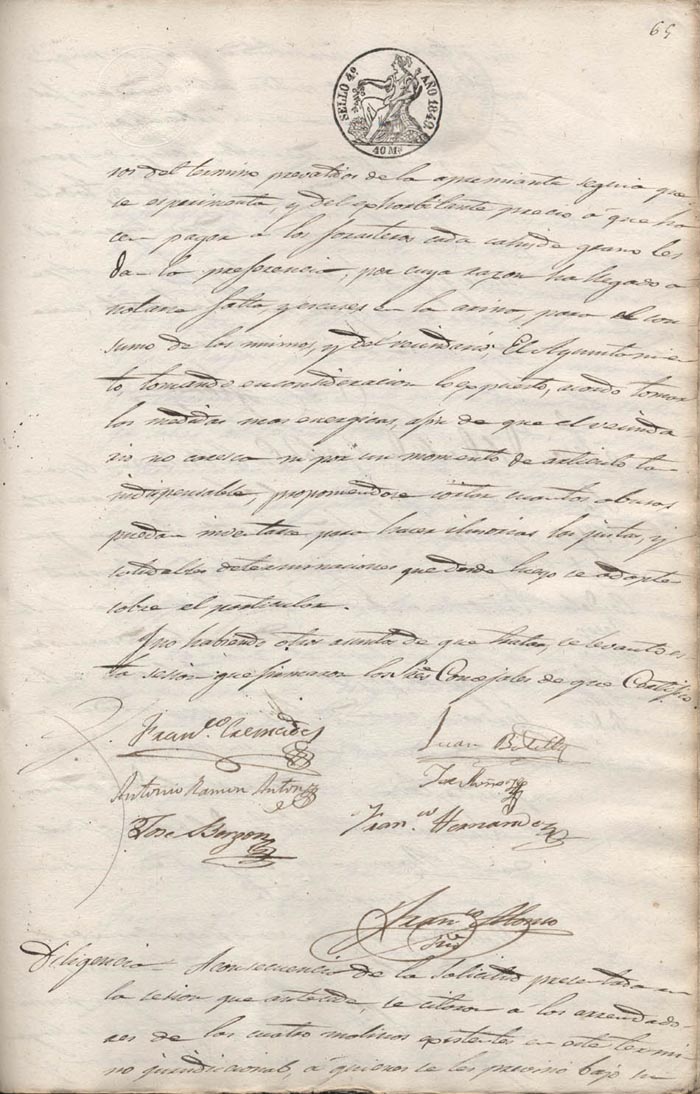 65
SELLO 4º AÑO 1849.
40 Mˢ
ros del termino prevalidos de la apremiante seguia que
se esperimenta, y del exhorbitante precio á que ha
cen pagar á los forasteros cada cahiz de grano les
da la preferencia, por cuya razon ha llegado a
notarse falta, y escases en la arina, para el con
sumo de los mismos, y del vecindario; El Ayuntamien
to, tomando en consideracion lo expuesto, acordó tomar
las medidas mas energicas, afin de que el vecinda
rio no caresca ni por un momento de articulo tan
indispensable, proponiendose cortar cuantos abusos
puedan inventarse para hacer ilusorias las justas, y
saludables determinaciones que desde luego se adopten
sobre el particular.
Y no habiendo otros asuntos de que tratar, se levantó es
ta sesion que firmaron los Sres Concejales de que Certifico
Franᶜᵒ
Juan
Antonio Ramon Antonio
José
Franᶜᵒ Hernandez
Franᶜᵒ Alonso
Srio
Diligencia A consecuencia de la solicitud presentada en
la sesion que antecede, se citaron á los arrendado
res de los cuatro molinos existentes en este termi
no jurisdicional, á quienes se les previno bajo su